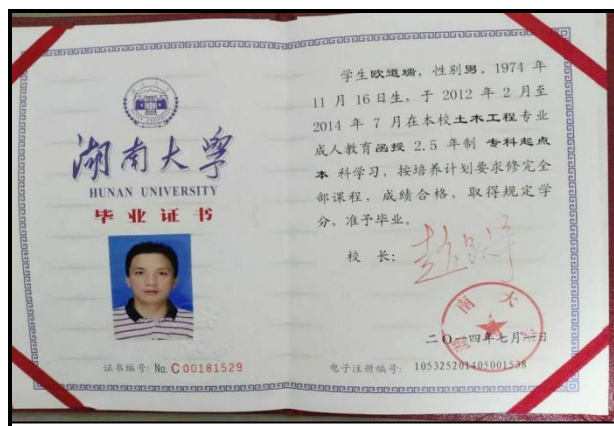 湖南大學
HUNAN UNIVERSITY
毕业证书
证书编号: No. C00181529
学生欧道瑞，性别男，1974 年
11 月 16日生，于 2012 年 2 月至
2014 年 7 月在本校土木工程专业
成人教育函授 2.5 年制 专科起点
本 科学习，按培养计划要求修完全
部课程，成绩合格，取得规定学
分，准予毕业。
校 长:
湖南大
二〇一四年七月 日
电子注册编号: 105325201405001538